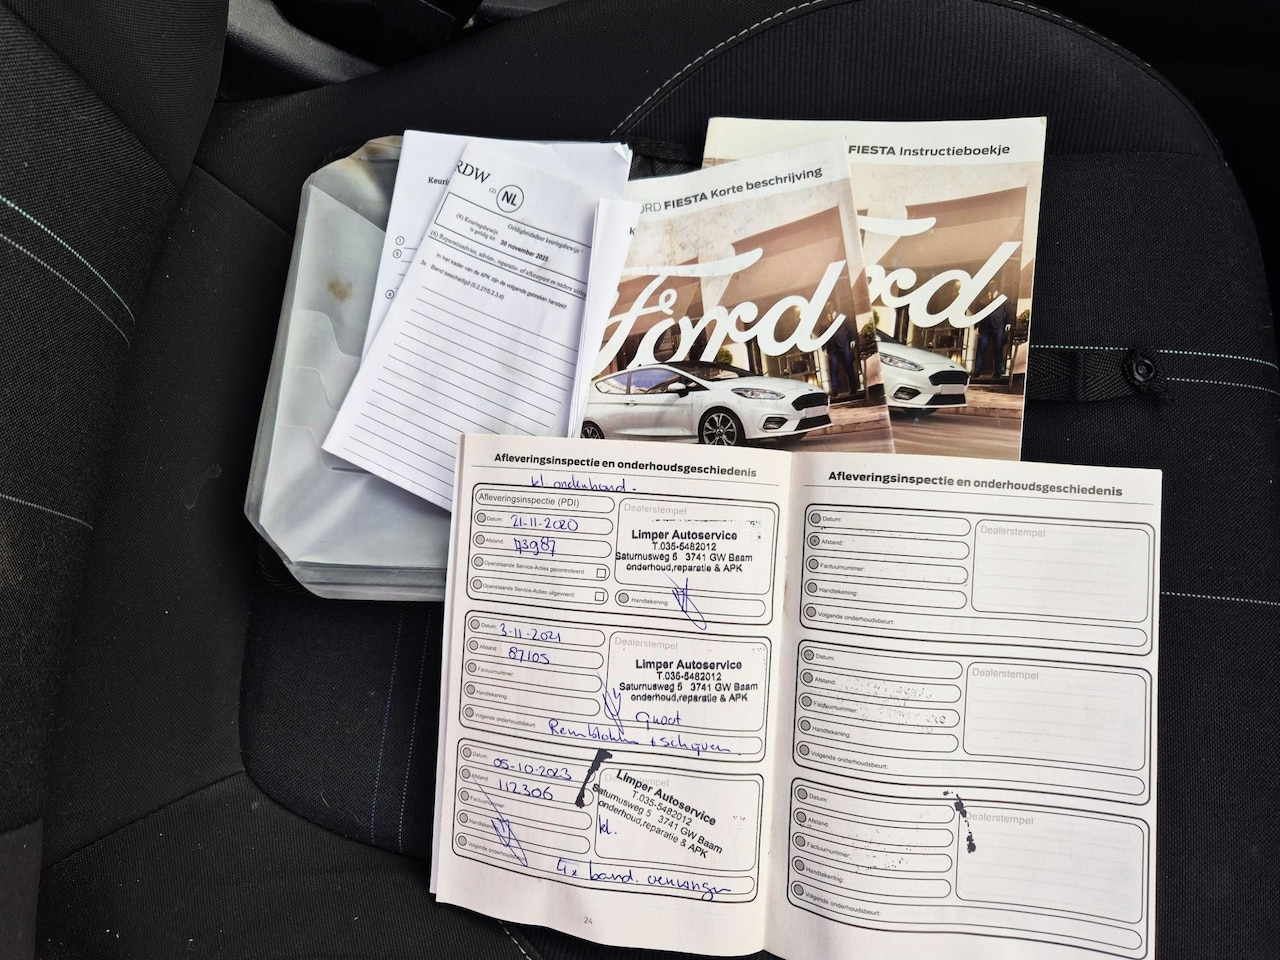 Keuri
RDW
(2)
NL
(8) Keuringsbewijs is geldig tot
Geldigheidsduur keuringsbewijs
30 november 2025
(6) Reparatieadvies, advies-, reparatie- of afkeurpunt en nadere
In het kader van de APK zijn de volgende gebreken hersteld
Band beschadigd
FORD FIESTA Korte beschrijving
Ford
FIESTA Instructieboekje
Ford
Afleveringsinspectie en onderhoudsgeschiedenis
kl. onderhoud.
Afleveringsinspectie (PDI)
Datum: 21-11-2020
Afstand: 73987
Openstaande Service-Acties gecontroleerd
Openstaande Service-Acties uitgevoerd:
Dealerstempel
Limper Autoservice
T.035-5482012
Saturnusweg 5 3741 GW Baarn
onderhoud,reparatie & APK
Handtekening:
Datum: 3-11-2021
Afstand: 87105
Factuurnummer:
Handtekening:
Volgende onderhoudsbeurt:
Dealerstempel
Limper Autoservice
T.035-5482012
Saturnusweg 5 3741 GW Baarn
onderhoud,reparatie & APK
Groot
Remblokken + schijven
Datum: 05-10-2023
Afstand: 112306
Factuurnummer:
Handtekening:
Volgende onderhoudsbeurt:
Dealerstempel
Limper Autoservice
T.035-5482012
Saturnusweg 5 3741 GW Baarn
onderhoud,reparatie & APK
kl.
4x band. vervangen
24
Afleveringsinspectie en onderhoudsgeschiedenis
Datum:
Afstand:
Factuurnummer:
Handtekening:
Volgende onderhoudsbeurt:
Dealerstempel
Datum:
Afstand:
Factuurnummer:
Handtekening:
Volgende onderhoudsbeurt:
Dealerstempel
Datum:
Afstand:
Factuurnummer:
Handtekening:
Volgende onderhoudsbeurt:
Dealerstempel